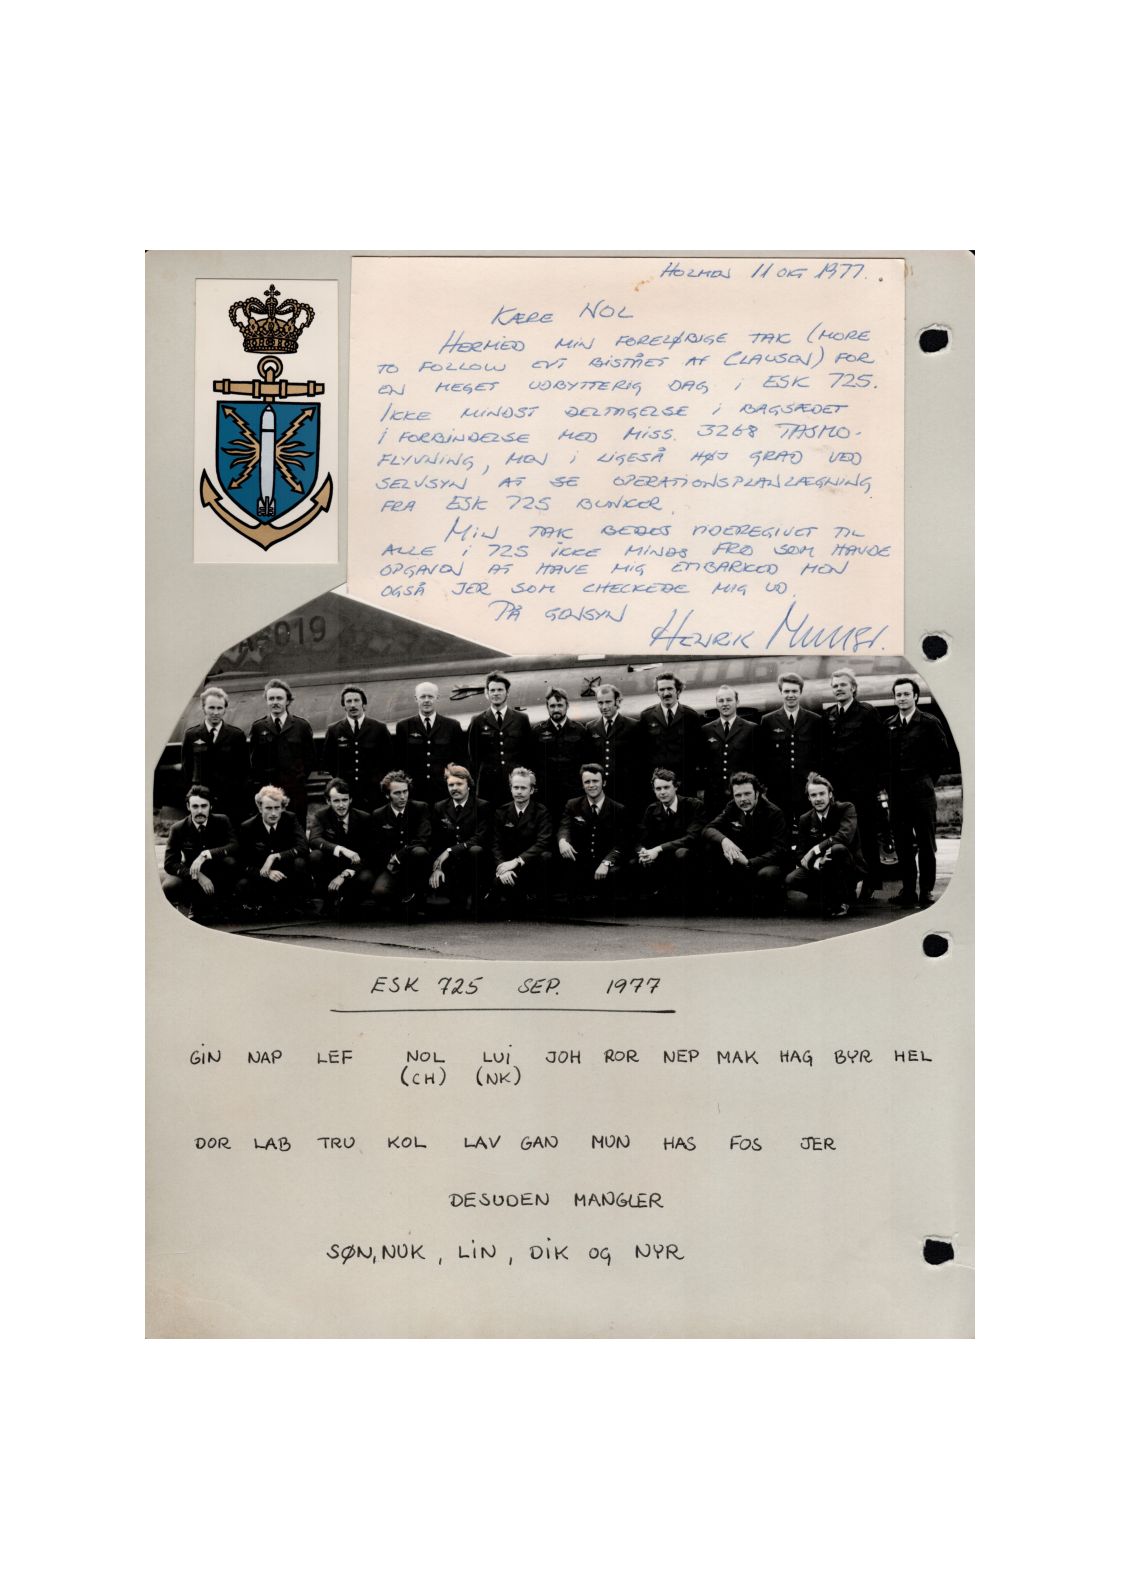 HOLMEN 11 OKT 1977.
KÆRE NOL
HERMED MIN FORELØBIGE TAK (MORE
TO FOLLOW EVT BISTÅET AF CLAUSEN) FOR
EN MEGET UDBYTTERIG DAG i ESK 725.
IKKE MINDST DELTAGELSE i BAGSÆDET
i FORBINDELSE MED MISS. 3268 TASMO-
FLYVNING, MEN i LIGESÅ HØJ GRAD VED
SELVSYN AT SE OPERATIONSPLANLÆGNING
FRA ESK 725 BUNKER.
MIN TAK BEDES VIDEREGIVET TIL
ALLE i 725 IKKE MINDS FRO SOM HAVDE
OPGAVEN AT HAVE MIG EMBARKED MEN
OGSÅ JER SOM CHECKEDE MIG UD.
PÅ GENSYN
HENRIK
019
ESK 725 SEP. 1977
GiN NAP LEF NOL LUi JOH ROR NEP MAK HAG BYR HEL
(CH) (NK)
DOR LAB TRU KOL LAV GAN MUN HAS FOS JER
DESUDEN MANGLER
SØN, NUK, LiN, DiK OG NYR